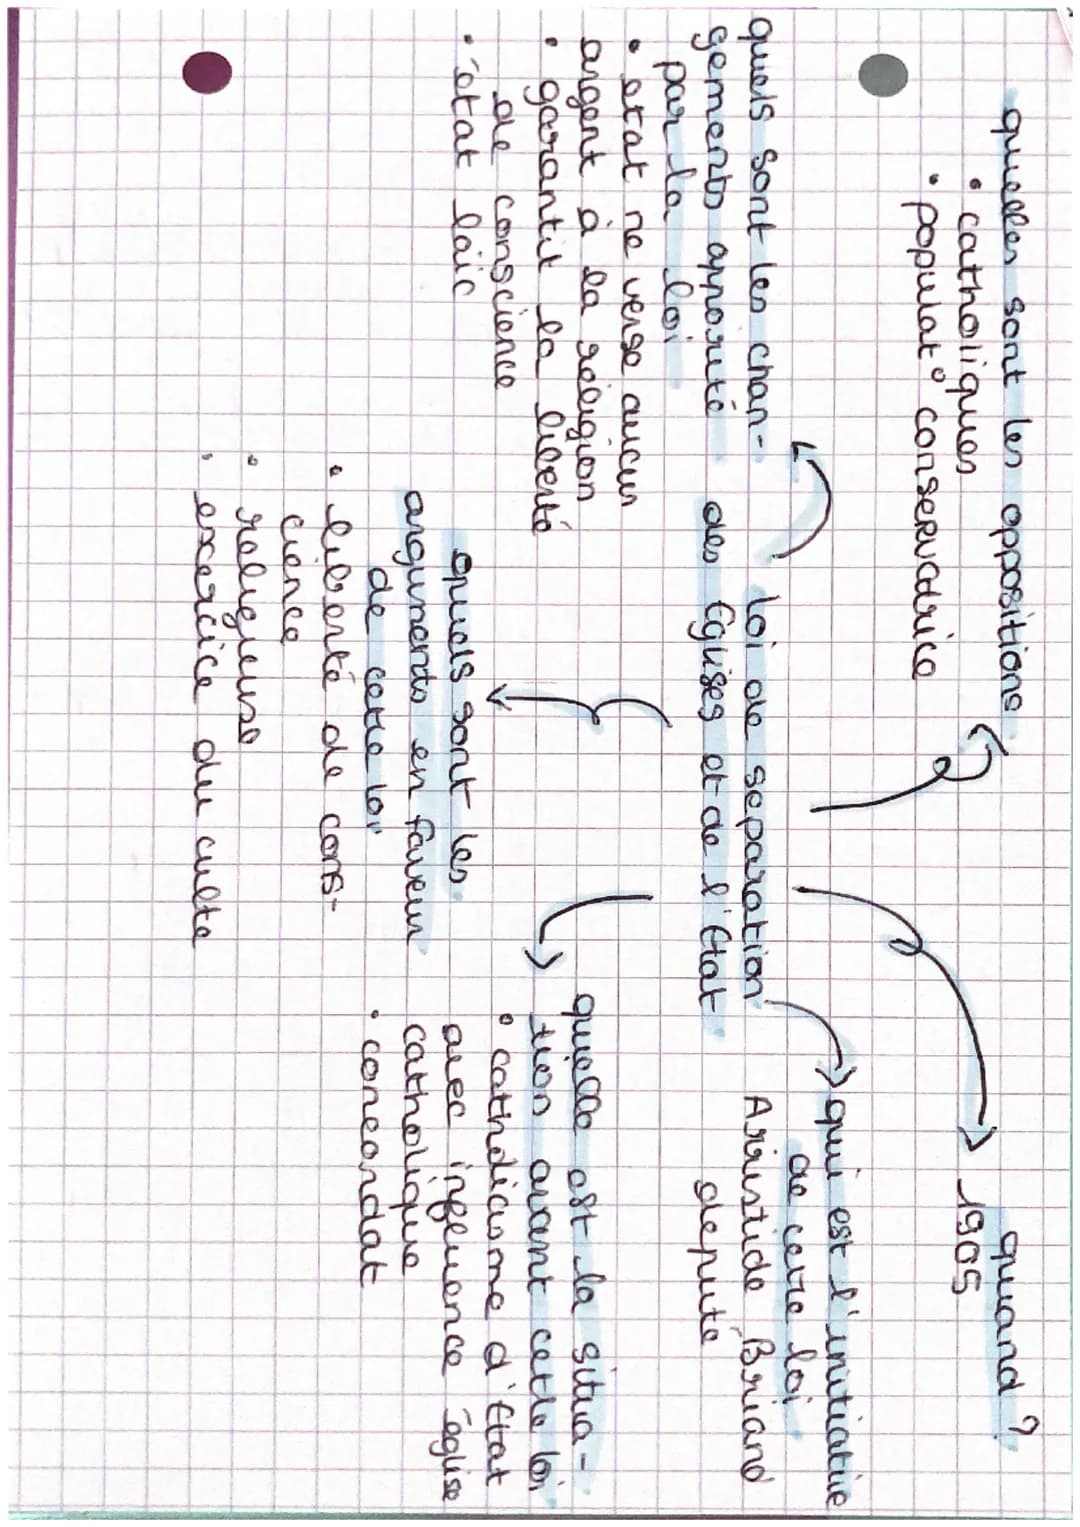 quelles sont les oppositions
• catholiques
• populat° conservatrice
quand ?
1905
qui est l'initiative
de cette loi
Arristide Briand
député
loi de separation
des Églises et de l'État
quels sont les chan-
gements apporté
par la loi
• etat ne verse aucun
argent à la religion
• garantit la liberté
de conscience
• état laïc
quels sont les
arguments en faveur
de cette loi
• liberté de cons-
cience
• religieuse
• exercice du culte
quelle est la situa-
tion avant cette loi
• catholicisme d'État
avec influence église
catholique
• concordat